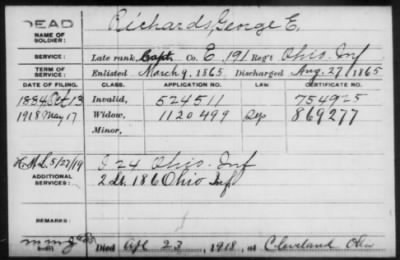 DEAD
Richards, George E.
NAME OF
SOLDIER:
SERVICE:
Late rank, Capt Co. E, 191 Reg't Ohio Inf
TERM OF
SERVICE:
Enlisted March 9, 1865 Discharged Aug. 27, 1865
DATE OF FILING. CLASS. APPLICATION NO. CERTIFICATE NO.
1884 Oct 13 Invalid, 524511 754925
1918 May 17 Widow, 1120499 869277
Minor,
5/22/19
ADDITIONAL
SERVICES:
I 24 Ohio Inf
2 Lt. 186 Ohio Inf
REMARKS:
Died Apr 23, 1918, at Cleveland Ohio